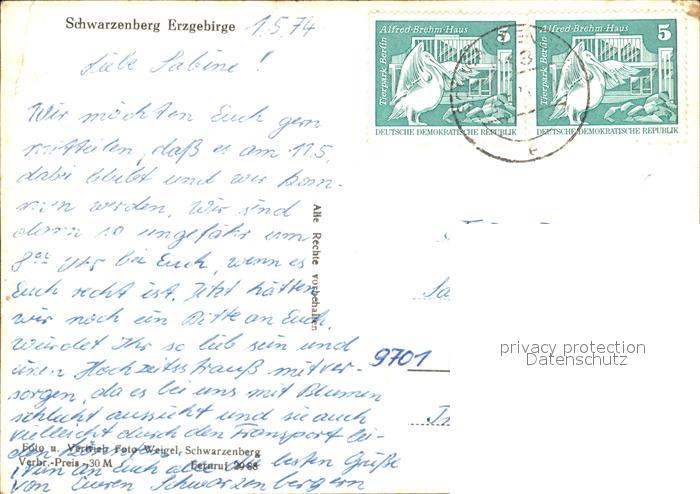 Schwarzenberg Erzgebirge 1.5.74
Alfred-Brehm-Haus 5
Tierpark Berlin
DEUTSCHE DEMOKRATISCHE REPUBLIK
Alfred-Brehm-Haus 5
Tierpark Berlin
DEUTSCHE DEMOKRATISCHE REPUBLIK
Liebe Sabine!
Wir möchten Euch gern
mitteilen, daß es am 11.5.
dabei bleibt und wir kom-
men werden. Wir sind
dann so ungefähr um
8oo Uhr bei Euch, wenn es
Euch recht ist. Jetzt hätten
wir noch ein Bitte an Euch.
Würdet Ihr so lieb sein und
einen Hochzeitsstrauß mitver-
sorgen, da es bei uns mit Blumen
schlecht aussieht und sie auch
vielleicht durch den Transport lei-
den
Nun an Euch alle die besten Grüße
von Euren Schwarzenbergern
Alle Rechte vorbehalten
9701
privacy protection
Datenschutz
Foto u. Vertrieb Foto Weigel, Schwarzenberg
Verbr.-Preis -,30 M Fernruf